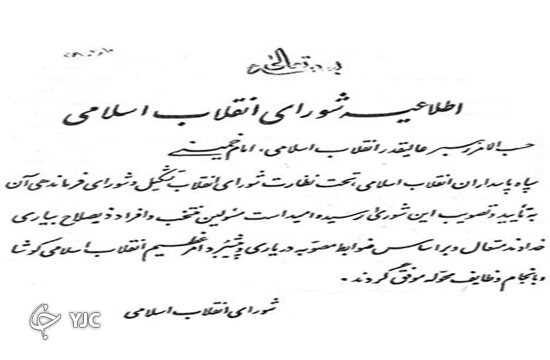 بسمه تعالی
اطلاعیه شورای انقلاب اسلامی
حسب الامر رهبر عالیقدر انقلاب اسلامی، امام خمینی
سپاه پاسداران انقلاب اسلامی، تحت نظارت شورای انقلاب تشکیل و شورای فرماندهی آن
به تأیید و تصویب این شوری رسیده امید است مسئولین منتخب و افراد ذیصلاح بیاری
خداوند متعال و بر اساس ضوابط مصوبه در یاری و پیشبرد امر عظیم انقلاب اسلامی کوشا
و بانجام وظایف محوله موفق گردند.
شورای انقلاب اسلامی
YJC